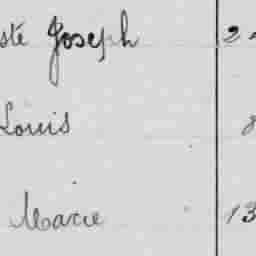 sté Joseph 2
Louis 8
Marie 13